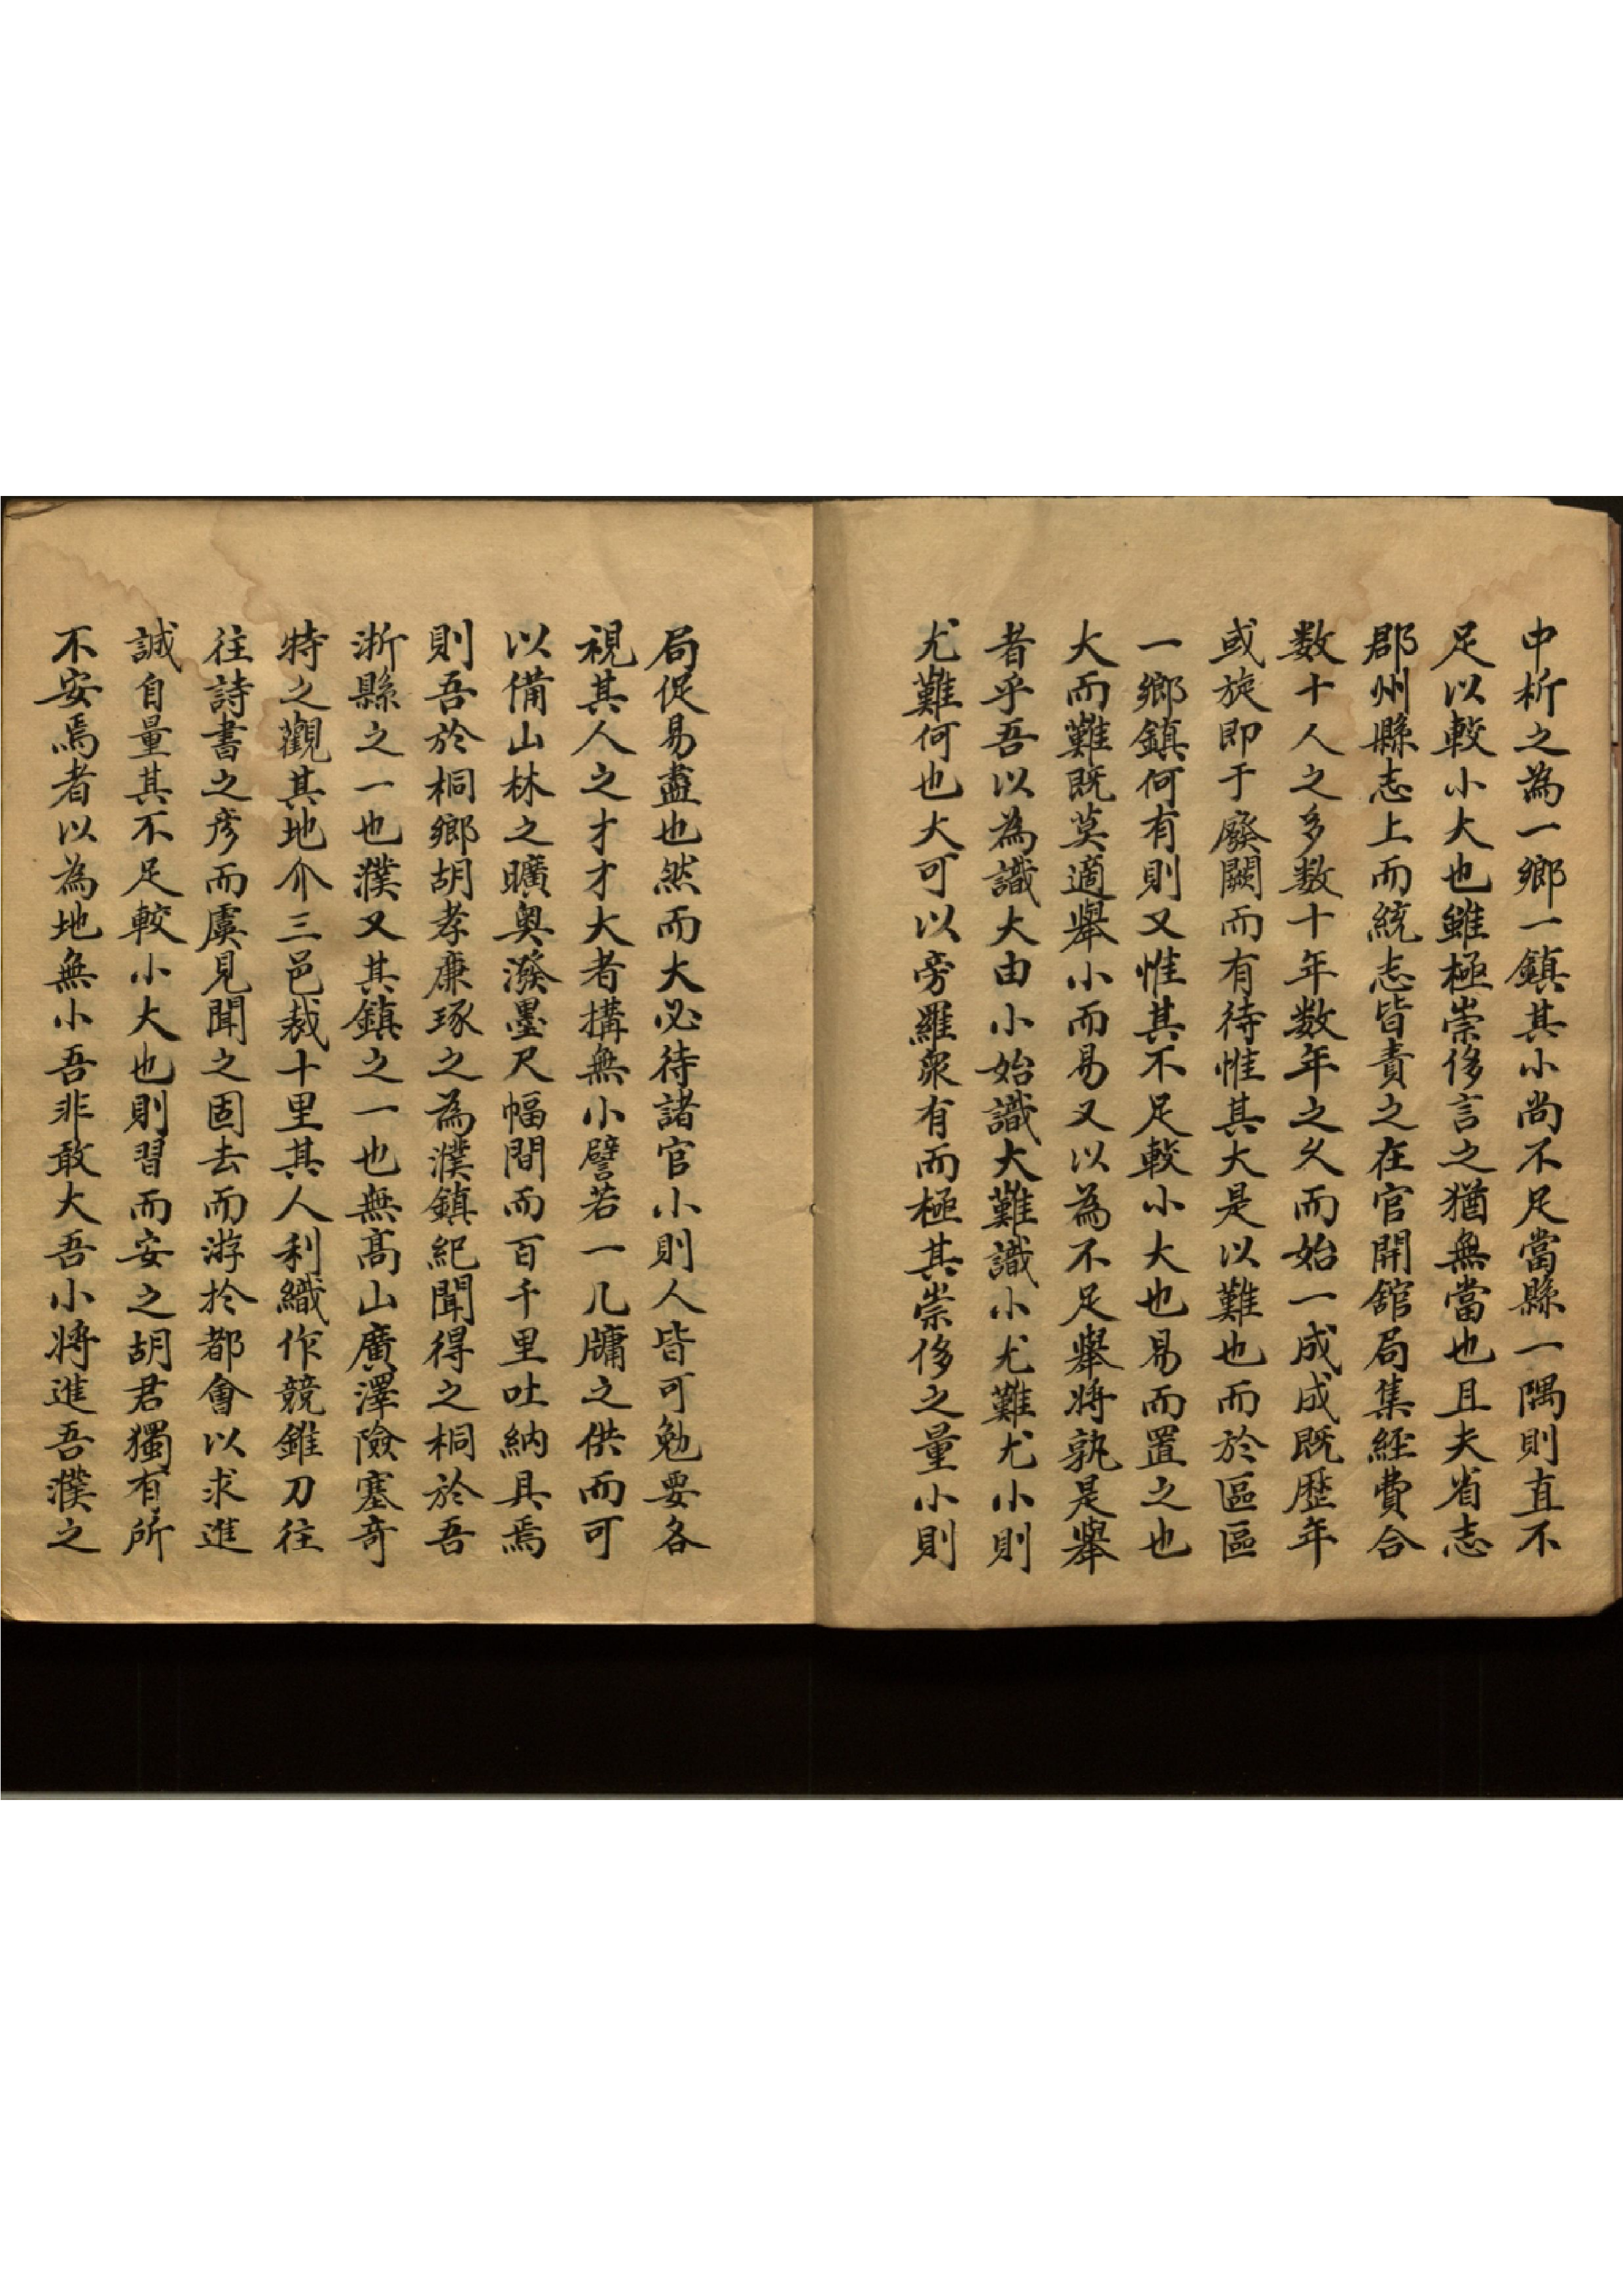 中析之為一鄉一鎮其小尚不足當縣一隅則直不
足以較小大也雖極崇侈言之猶無當也且夫省志
郡州縣志上而統志皆責之在官開館局集經費合
数十人之多数十年数年之久而始一成成既歷年
或旋即于廢闕而有待惟其大是以難也而於區區
一鄉鎮何有則又惟其不足較小大也易而置之也
大而難既莫適舉小而易又以為不足舉將孰是舉
者乎吾以為識大由小始識大難識小尤難尤小則
尤難何也大可以旁羅衆有而極其崇侈之量小則
局促易盡也然而大必待諸官小則人皆可勉要各
視其人之才才大者搆無小譬若一几牖之供而可
以備山林之曠奥潑墨尺幅間而百千里吐納具焉
則吾於桐鄉胡孝廉琢之為濮鎮紀聞得之桐於吾
浙縣之一也濮又其鎮之一也無高山廣澤險塞奇
特之觀其地介三邑裁十里其人利織作競錐刀往
往詩書之彦而虞見聞之固去而游於都會以求進
誠自量其不足較小大也則習而安之胡君獨有所
不安焉者以為地無小吾非敢大吾小將進吾濮之